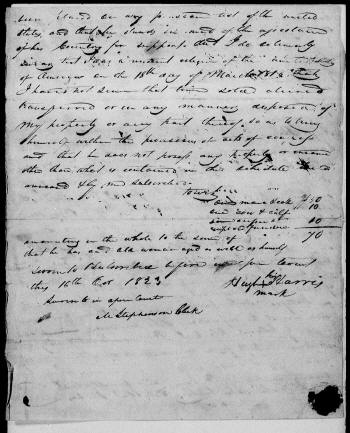 been placed on any pension list of the united
states, and that he stands in need of the assistance
of his Country for support that I do solemnly
swear that I was a resident citizen of the United States
of America on the 18th day of March 1818 that
I have not since that time sold aliened
transferred or in any manner disposed of
my property or any part thereof so as to bring
himself within the provisions of acts of congress
and that he does not possess any property or means
other than what is contained in this schedule
and by me subscribed
to wit
one mare 50
one Cow & calf 10
10
amounting in the whole to the sum of 70
that he has and old woman aged as well as himself
Sworn to & subscribed before in open Court
this 16th Oct 1823
Hugh his Harris
mark
Sworn to in open Court
M Stephenson Clerk